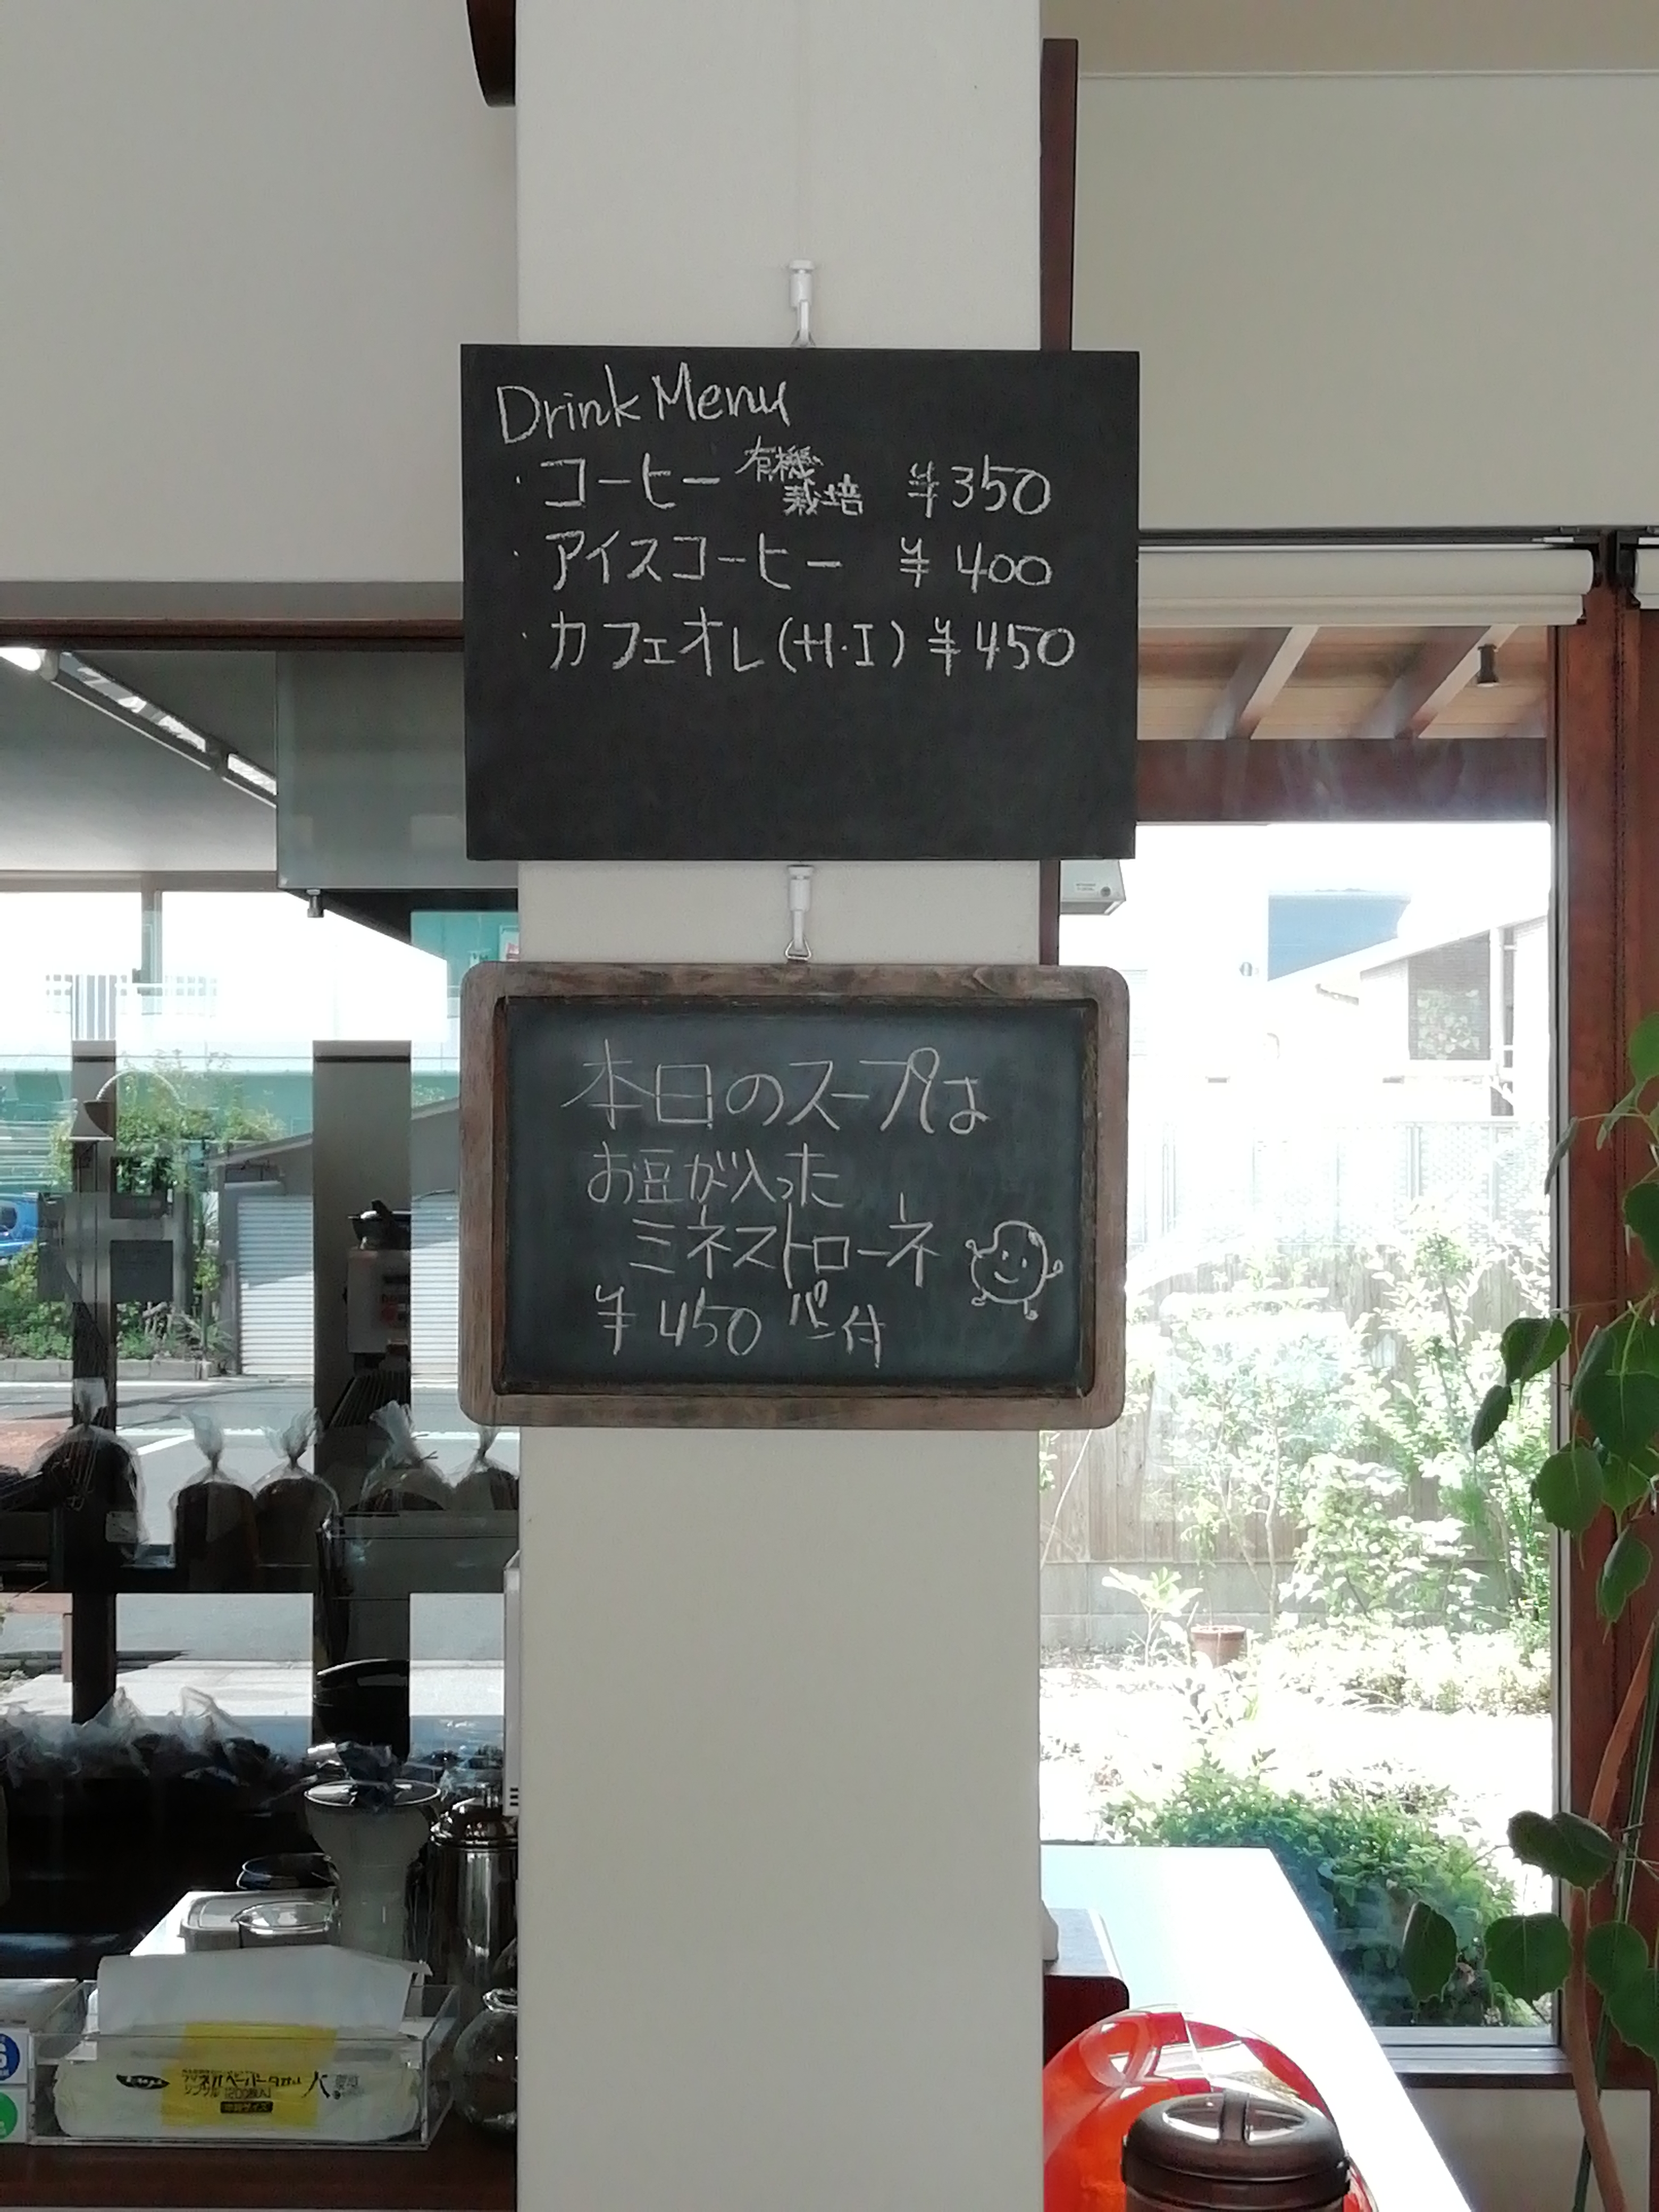 Drink Menu
・コーヒー 有機栽培 ¥350
・アイスコーヒー ¥400
・カフェオレ(H・I) ¥450
本日のスープは
お豆が入った
ミネストローネ
¥450 パン付
ペーパータオル
シングル 200枚入